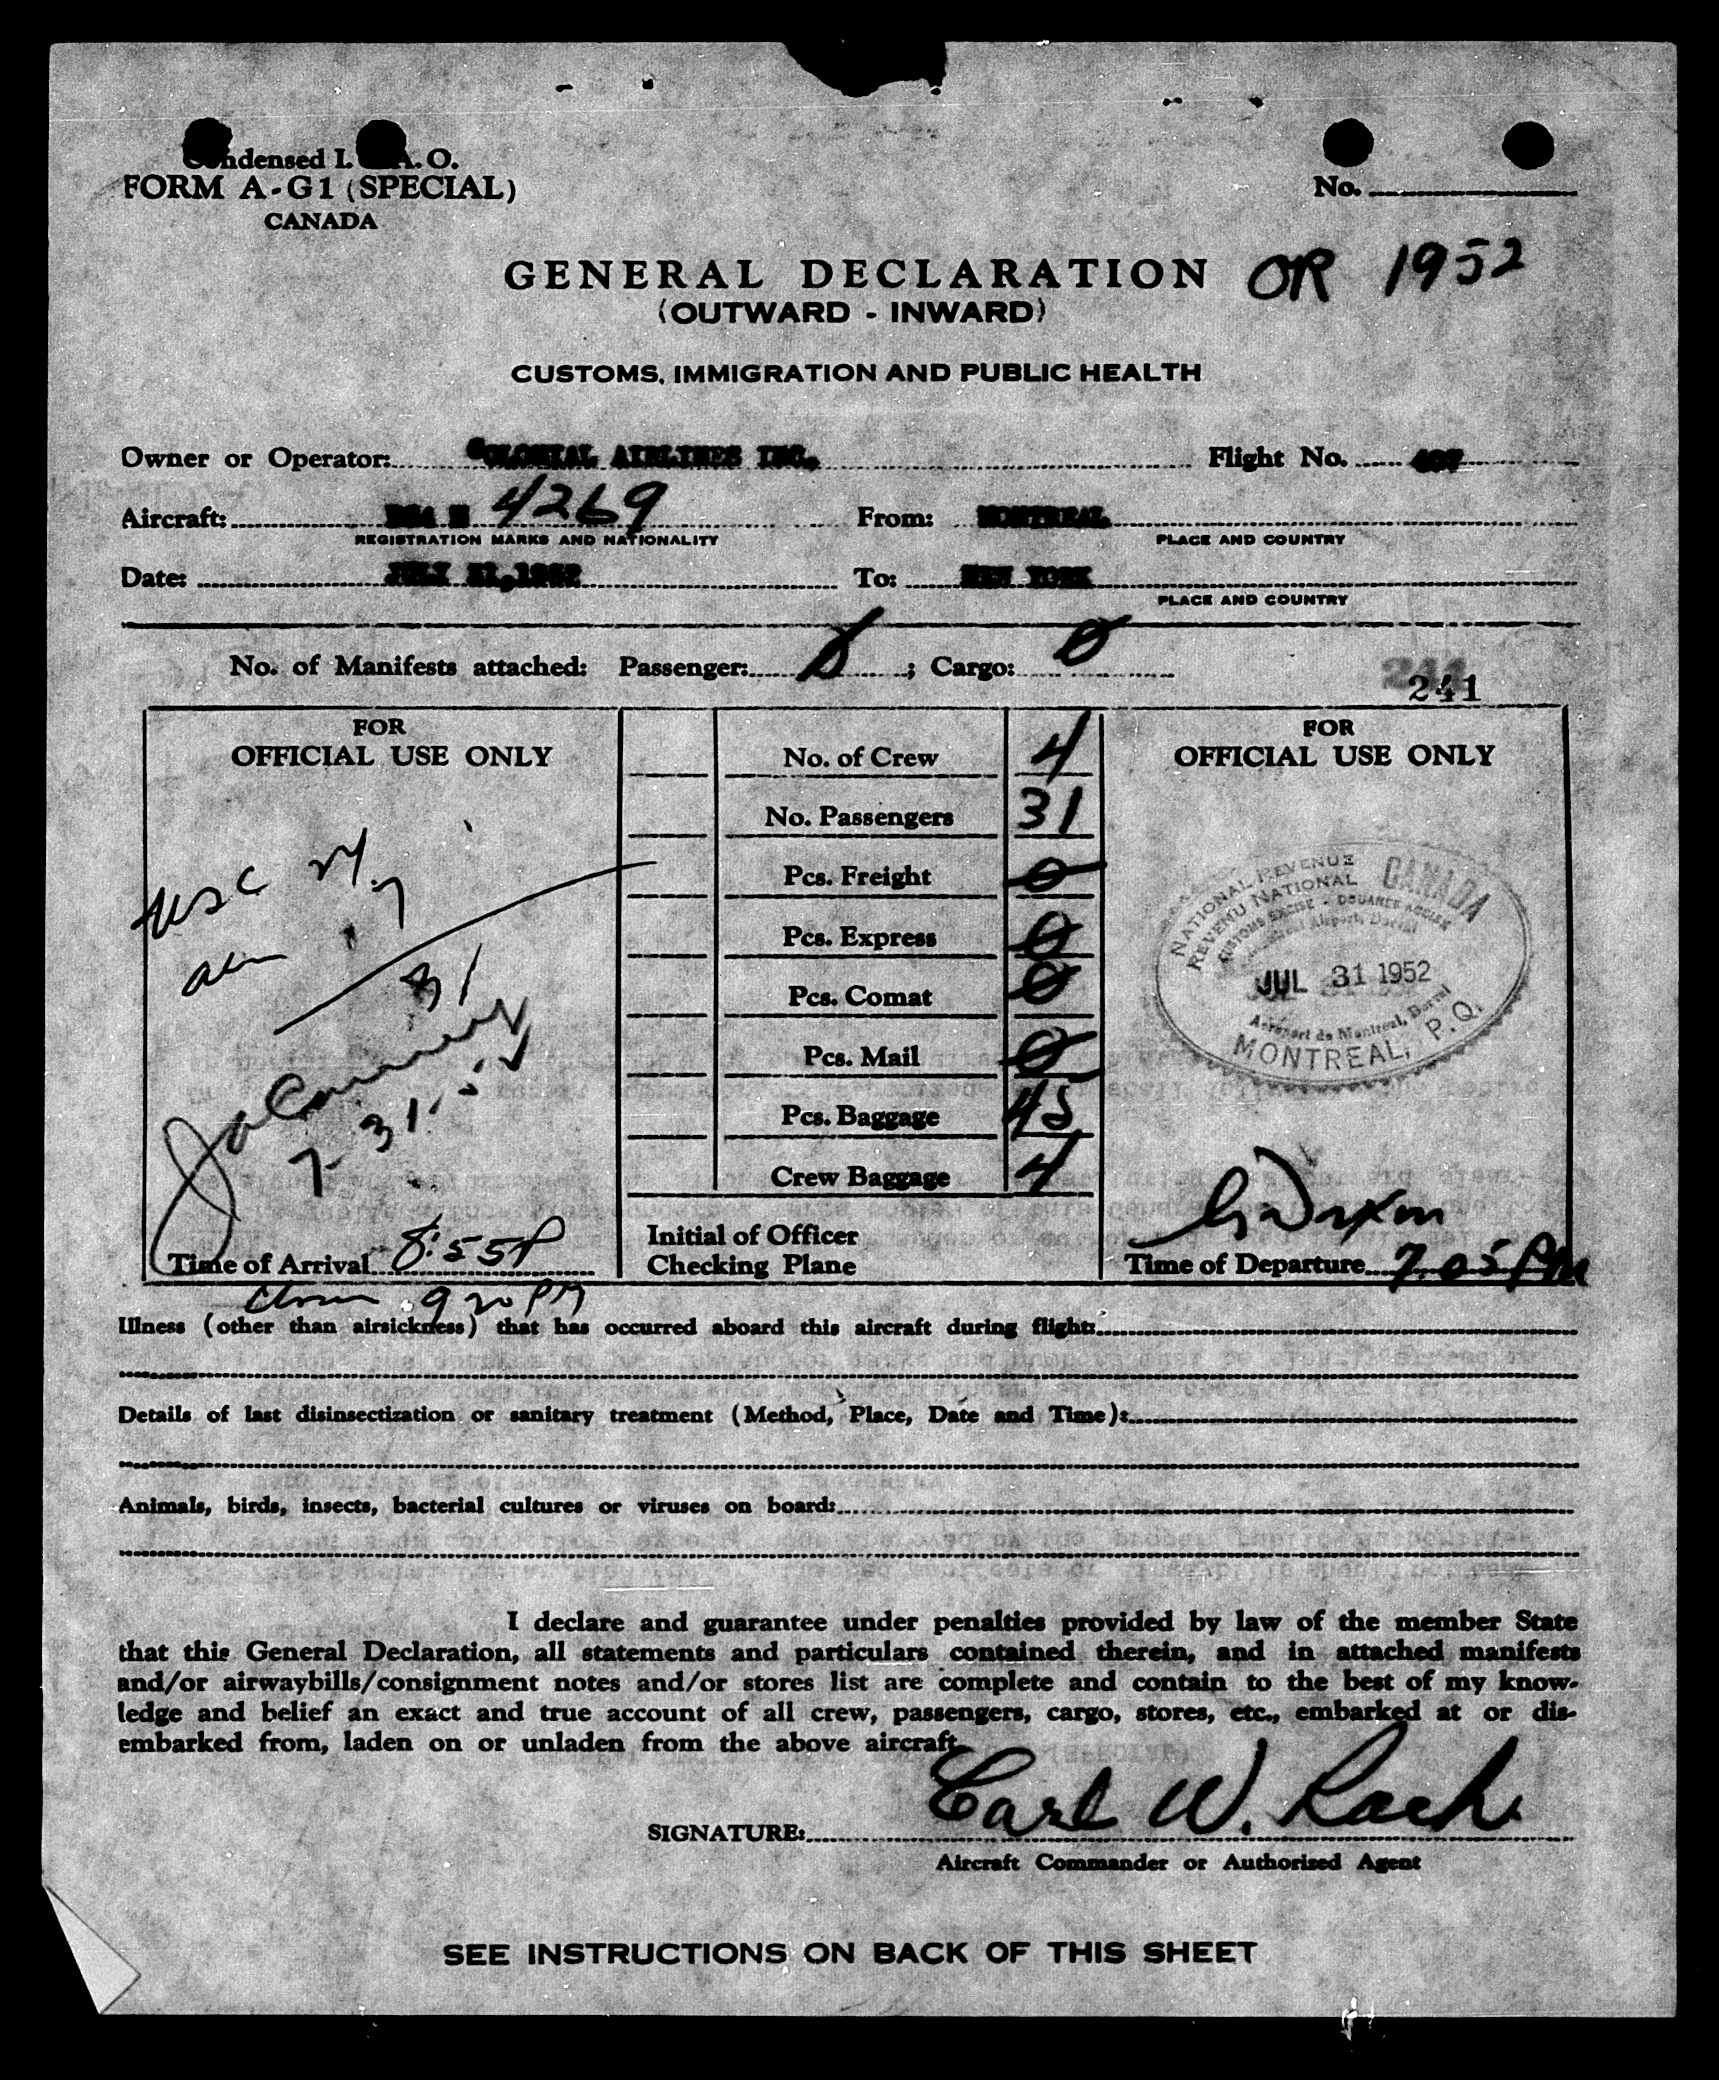 Condensed I. A.O.
FORM A-G1 (SPECIAL)
CANADA
No.
GENERAL DECLARATION OR 1952
(OUTWARD - INWARD)
CUSTOMS, IMMIGRATION AND PUBLIC HEALTH
Owner or Operator: COLONIAL AIRLINES INC. Flight No.
Aircraft: N 4269 From: MONTREAL
REGISTRATION MARKS AND NATIONALITY PLACE AND COUNTRY
Date: JULY 31,1952 To: NEW YORK
PLACE AND COUNTRY
No. of Manifests attached: Passenger: 0 ; Cargo: 0
241
241
FOR
OFFICIAL USE ONLY
31
7-31-52
Time of Arrival 8:55P
9 20 PM
No. of Crew 4
No. Passengers 31
Pcs. Freight 0
Pcs. Express 0
Pcs. Comat 0
Pcs. Mail 0
Pcs. Baggage 45
Crew Baggage 4
Initial of Officer
Checking Plane
FOR
OFFICIAL USE ONLY
NATIONAL REVENUE CANADA
REVENU NATIONAL
CUSTOMS EXCISE - DOUANES ACCISE
Montreal Airport, Dorval
JUL 31 1952
Aéroport de Montreal, Dorval
MONTREAL, P.Q.
Time of Departure 7.05 PM
Illness (other than airsickness) that has occurred aboard this aircraft during flight:
Details of last disinsectization or sanitary treatment (Method, Place, Date and Time):
Animals, birds, insects, bacterial cultures or viruses on board:
I declare and guarantee under penalties provided by law of the member State
that this General Declaration, all statements and particulars contained therein, and in attached manifests
and/or airwaybills/consignment notes and/or stores list are complete and contain to the best of my know-
ledge and belief an exact and true account of all crew, passengers, cargo, stores, etc., embarked at or dis-
embarked from, laden on or unladen from the above aircraft.
SIGNATURE: Carl W. Rach
Aircraft Commander or Authorized Agent
SEE INSTRUCTIONS ON BACK OF THIS SHEET